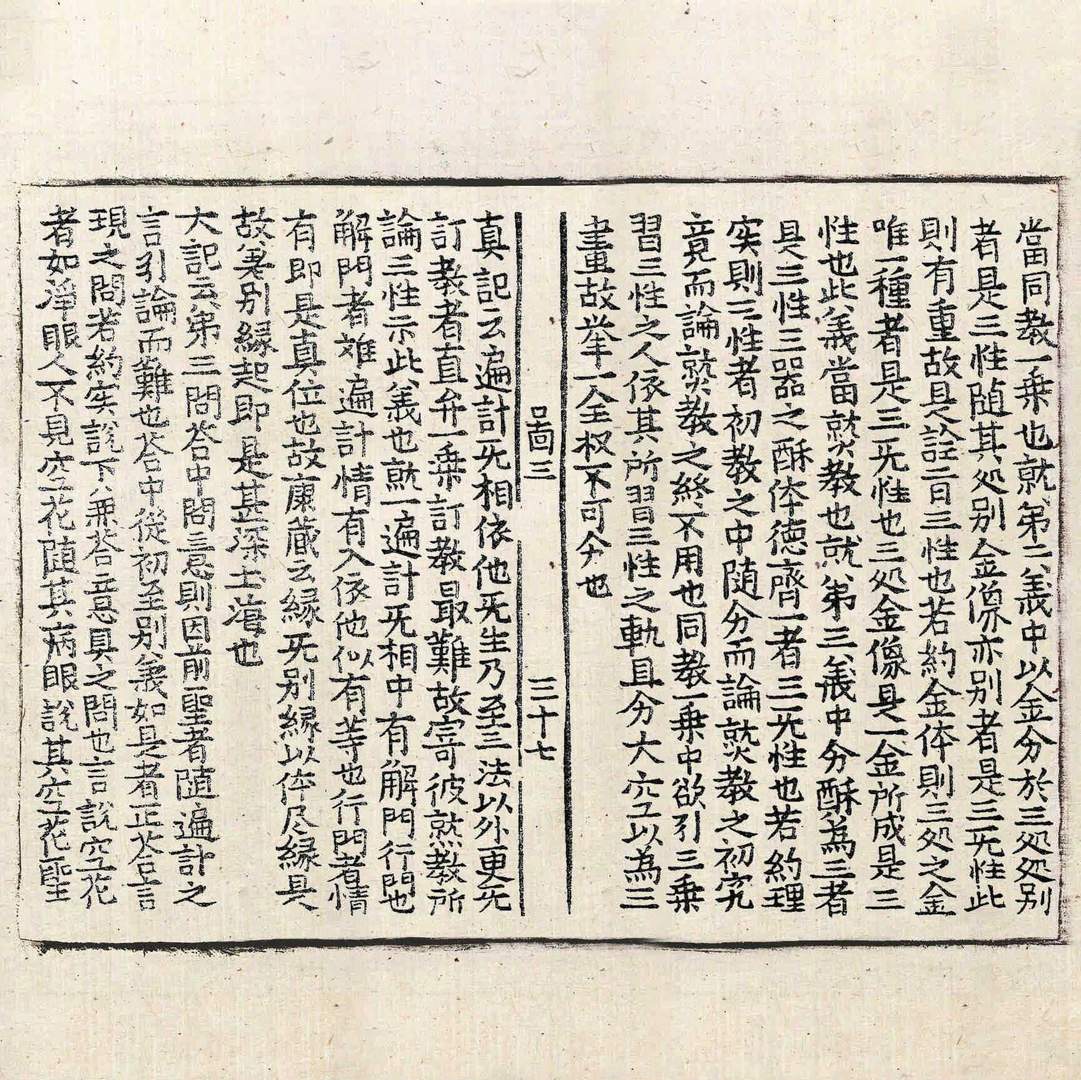 當同教一乗也就第二義中以金分於三処処別
者是三性随其処别金像亦别者是三旡性此
則有重故是詮二曰三性也若約金体則三処之金
唯一種者是三旡性也三処金像是一金所成是三
性也此義當就教也就第三義中分酥為三者
是三性三器之酥体徳齊一者三旡性也若約理
实則三性者初教之中随分而論就教之初究
竟而論就教之終不用也同教一乗中欲引三乗
習三性之人依其所習三性之軌且分大空以為三
畫故挙一全权不可分也
啚三
三十七
真記云遍計旡相依他旡生乃至三法以外更旡
訂教者直弁一乗訂教最難故寄彼就教所
論三性示此義也就一遍計旡相中有解門行門也
解門者难遍計情有入依他似有等也行門者情
有即是真位也故康蔵云縁旡别縁以体尽縁具
故旡别縁起即是甚深士海也
大記云第三問荅中問意則因前聖者随遍計之
言引論而難也荅中從初至别義如是者正荅言
現之問若約实說下兼荅意具之問也言說空花
者如浄眼人不見空花随其病眼說其空花聖